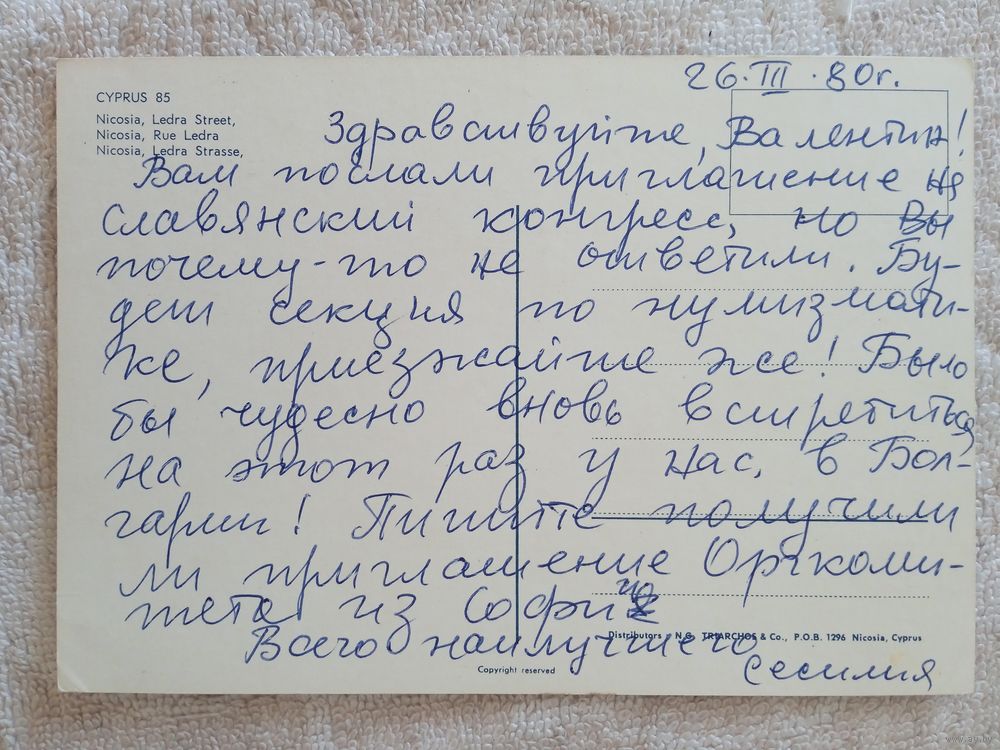 26.III.80г.
CYPRUS 85
Nicosia, Ledra Street,
Nicosia, Rue Ledra
Nicosia, Ledra Strasse,
Здравствуйте, Валентин!
Вам послали приглашение на
славянский конгресс, но Вы
почему-то не ответили. Бу-
дет секция по нумизмати-
ке, приезжайте же! Было
бы чудесно вновь встретиться
на этот раз у нас, в Бол-
гарии! Пишите получили
ли приглашение Оргкоми-
тета из Софии
Distributors: N.G. TRIARCHOS & Co., P.O.B. 1296 Nicosia, Cyprus
Всего наилучшего
Сесилия
Copyright reserved
www.ay.by